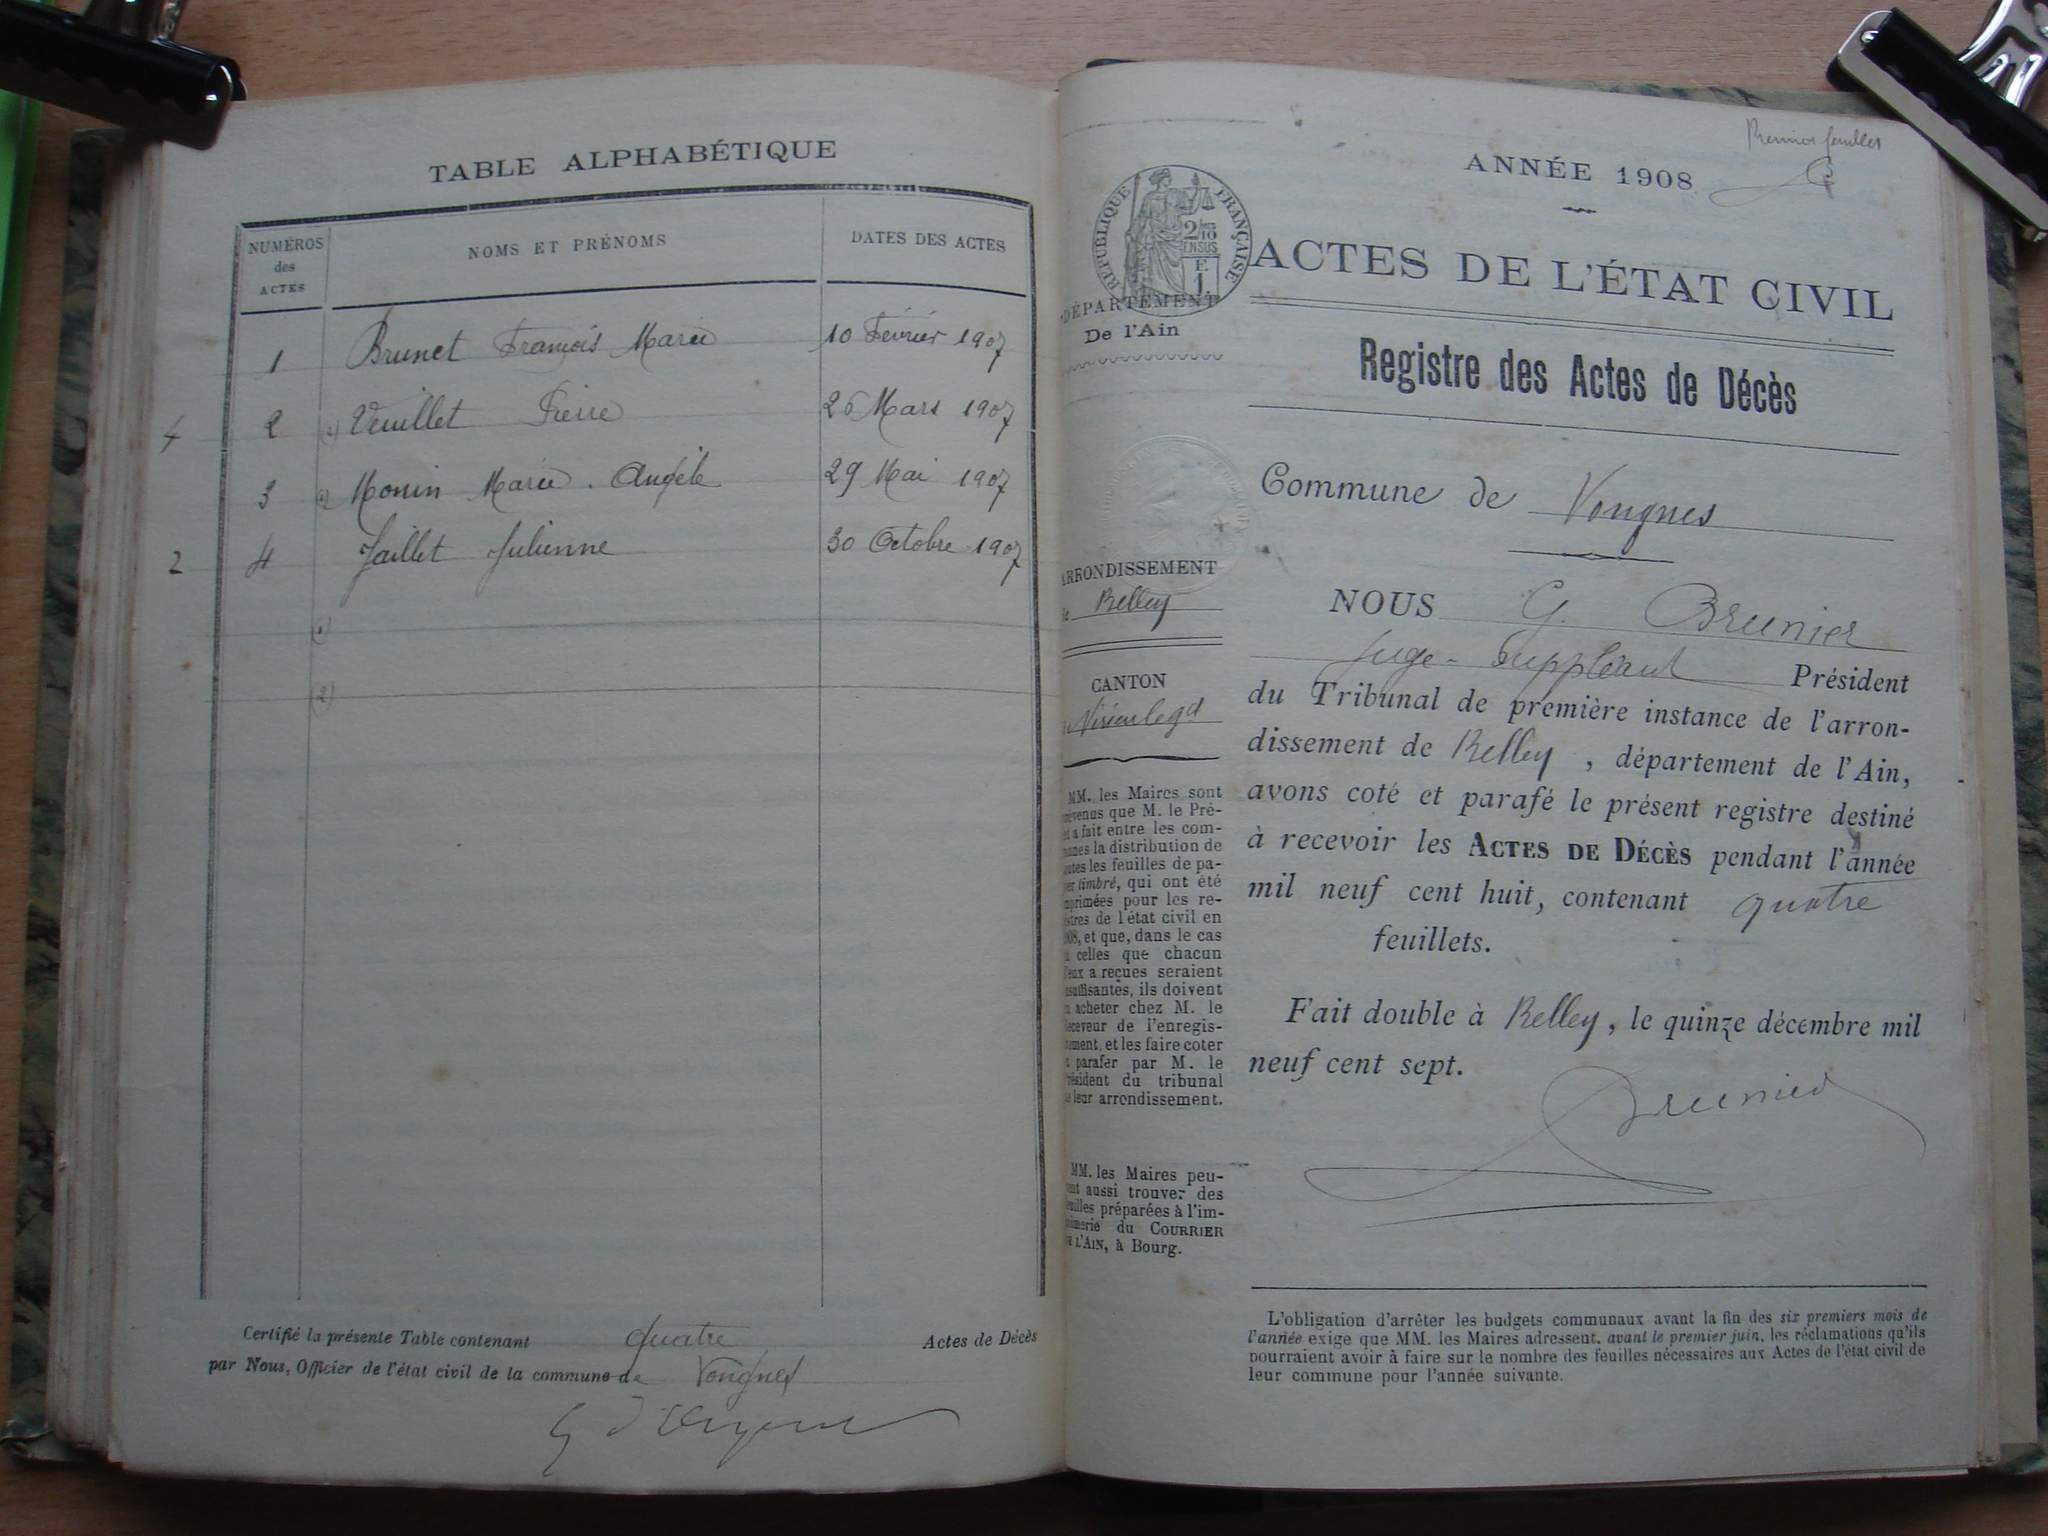 TABLE ALPHABÉTIQUE
NUMÉROS
des
ACTES
NOMS ET PRÉNOMS
DATES DES ACTES
1 Brunet François Marie 10 Février 1907
4 2 Veuillet Pierre 26 Mars 1907
3 Monin Marie . Angèle 29 Mai 1907
2 4 Jaillet Julienne 30 Octobre 1907
Certifié la présente Table contenant quatre Actes de Décès
par Nous, Officier de l'état civil de la commune de Vongnes
Premier feuillet
ANNÉE 1908
RÉPUBLIQUE FRANÇAISE
2/10
EN SUS
ACTES DE L'ÉTAT CIVIL
DÉPARTEMENT
De l'Ain
Registre des Actes de Décès
Commune de Vongnes
ARRONDISSEMENT
Belley
CANTON
Virieu le gd
NOUS G. Brunier
Juge-Suppléant Président
du Tribunal de première instance de l'arron-
dissement de Belley, département de l'Ain,
avons coté et parafé le présent registre destiné
à recevoir les ACTES DE DÉCÈS pendant l'année
mil neuf cent huit, contenant quatre
feuillets.
Fait double à Belley, le quinze décembre mil
neuf cent sept.
Brunier
MM. les Maires sont
que M. le Pré-
a fait entre les com-
la distribution de
les feuilles de pa-
timbré, qui ont été
pour les re-
de l'état civil en
et que, dans le cas
celles que chacun
a reçues seraient
ils doivent
acheter chez M. le
de l'enregis-
et les faire coter
parafer par M. le
du tribunal
leur arrondissement.
MM. les Maires peu-
aussi trouver des
préparées à l'im-
du COURRIER
L'AIN, à Bourg.
L'obligation d'arrêter les budgets communaux avant la fin des six premiers mois de
l'année exige que MM. les Maires adressent, avant le premier juin, les réclamations qu'ils
pourraient avoir à faire sur le nombre des feuilles nécessaires aux Actes de l'état civil de
leur commune pour l'année suivante.